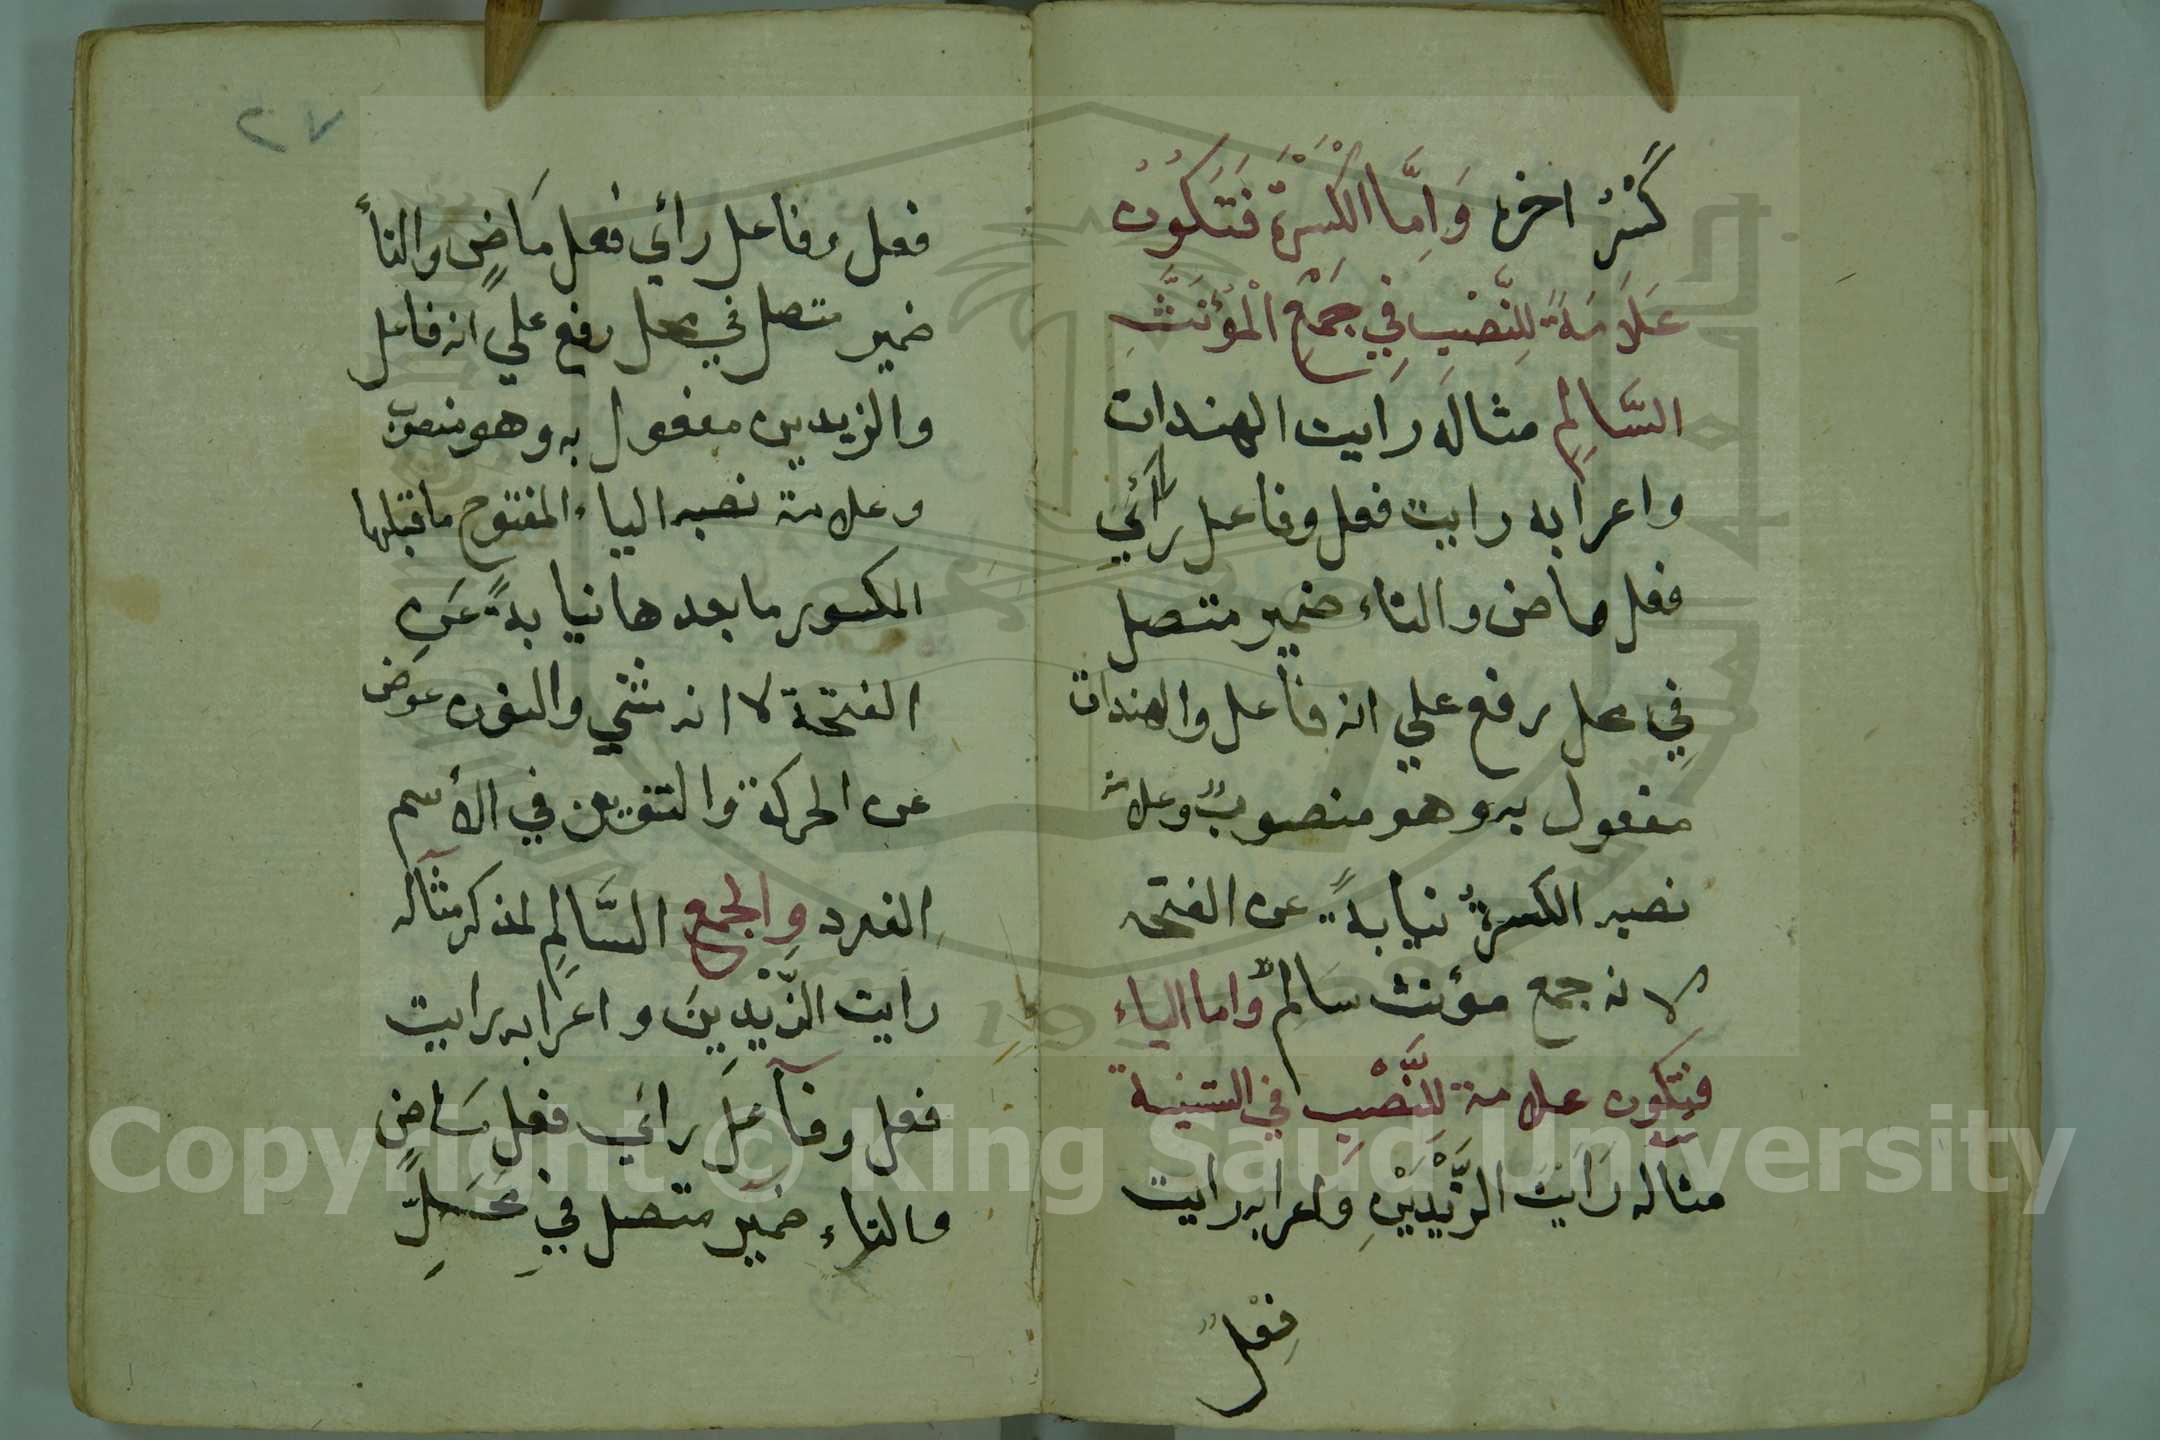 كسْرُ اخره وَاِمَّا الكَسْرَةُ فَتَكُوُن
عَلَامَةً لِلنَّصْبِ فِي جَمْعِ الْمُؤنَّثِ
السَّالِمِ مثاله رايت الهندات
واعرابه رايت فعل وفاعل رأي
فعل ماض والتاء ضمير متصل
في محل رفع علي انه فاعل والهندات
مفعول به وهو منصوبٌ وعلامة
نصبه الكسرةُ نيابةً عن الفتحه
لانه جمع مؤنث سالم واما الياء
فتكون علامة لِلنَّصْبِ في التثنية
مثاله رَايَتُ الزَّيْدَيْنِ واعرابه رايت
فعل
٢٧
فعل وفاعل رائي فعل مَاضٍ والتأ
ضمير متصل في محل رفع علي انه فاعل
والزيدين مفعول به وهو منصوب
وعلامة نصبه الياء المفتوح ماقبلها
المكسور مابعدها نيابةً عَنِ
الفتحة لاانه مثني والنون عوض
عن الحركة والتنوين في الأسم
المفرد والجمع السَّالِمِ المذكر مثاله
رايت الزَّيْدِينَ واعرابه رايت
فعل وفاعل رائي فعل مَاضٍ
والتاء ضمير متصل في محلِّ
Copyright © King Saud University